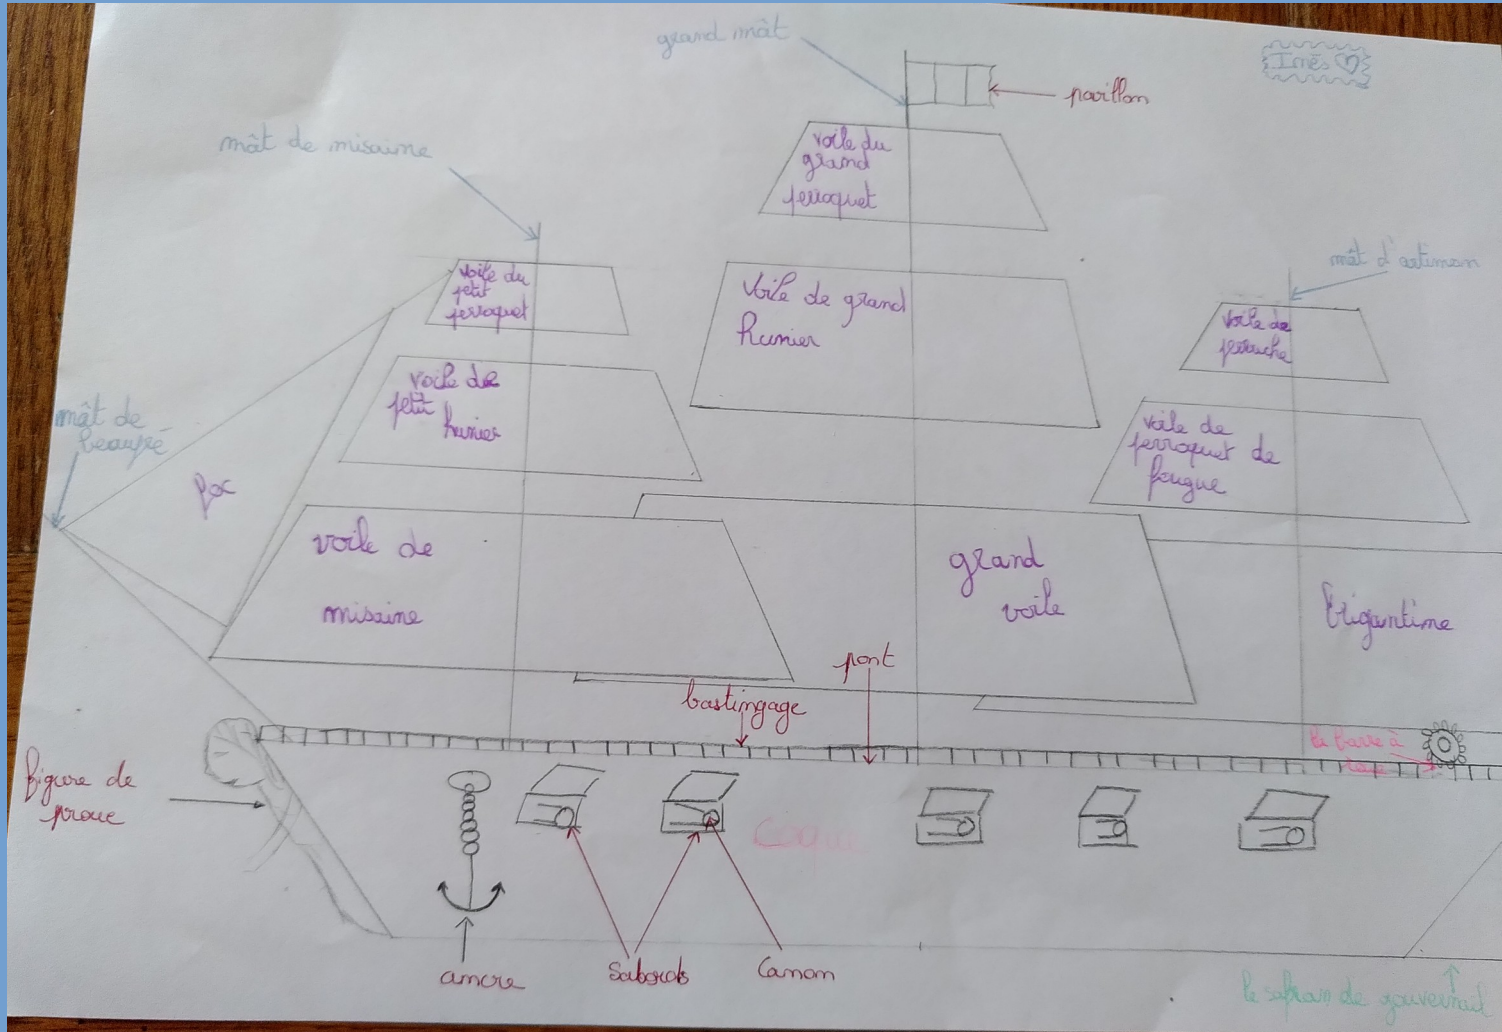 grand mât
Inès
pavillon
mât de misaine
voile du
grand
perroquet
mât d'artimon
voile du
petit
perroquet
voile de grand
hunier
voile de
perruche
voile de
petit
hunier
mât de
beaupré
voile de
perroquet de
fougue
foc
voile de
misaine
grand
voile
brigantine
pont
bastingage
la barre à
roue
figure de
proue
Coque
ancre
Sabords
Canon
le safran de gouvernail